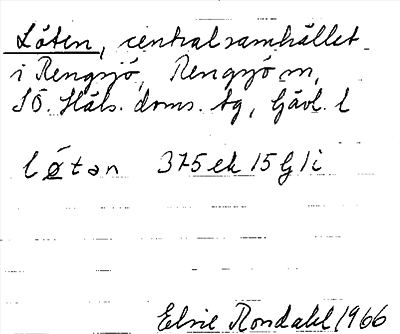 Löten, centralsamhället
i Rengsjö, Rengsjö sn,
SÖ. Häls. doms. tg, Gävl. l
løtən 375 ek 15 G 1 i
Elsie Rondahl 1966